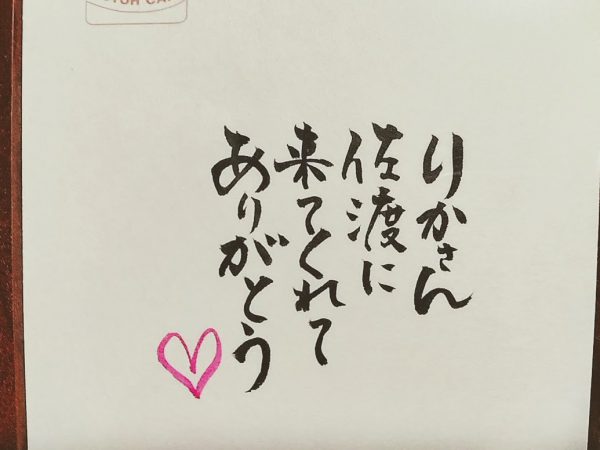 りかさん
佐渡に
来てくれて
ありがとう